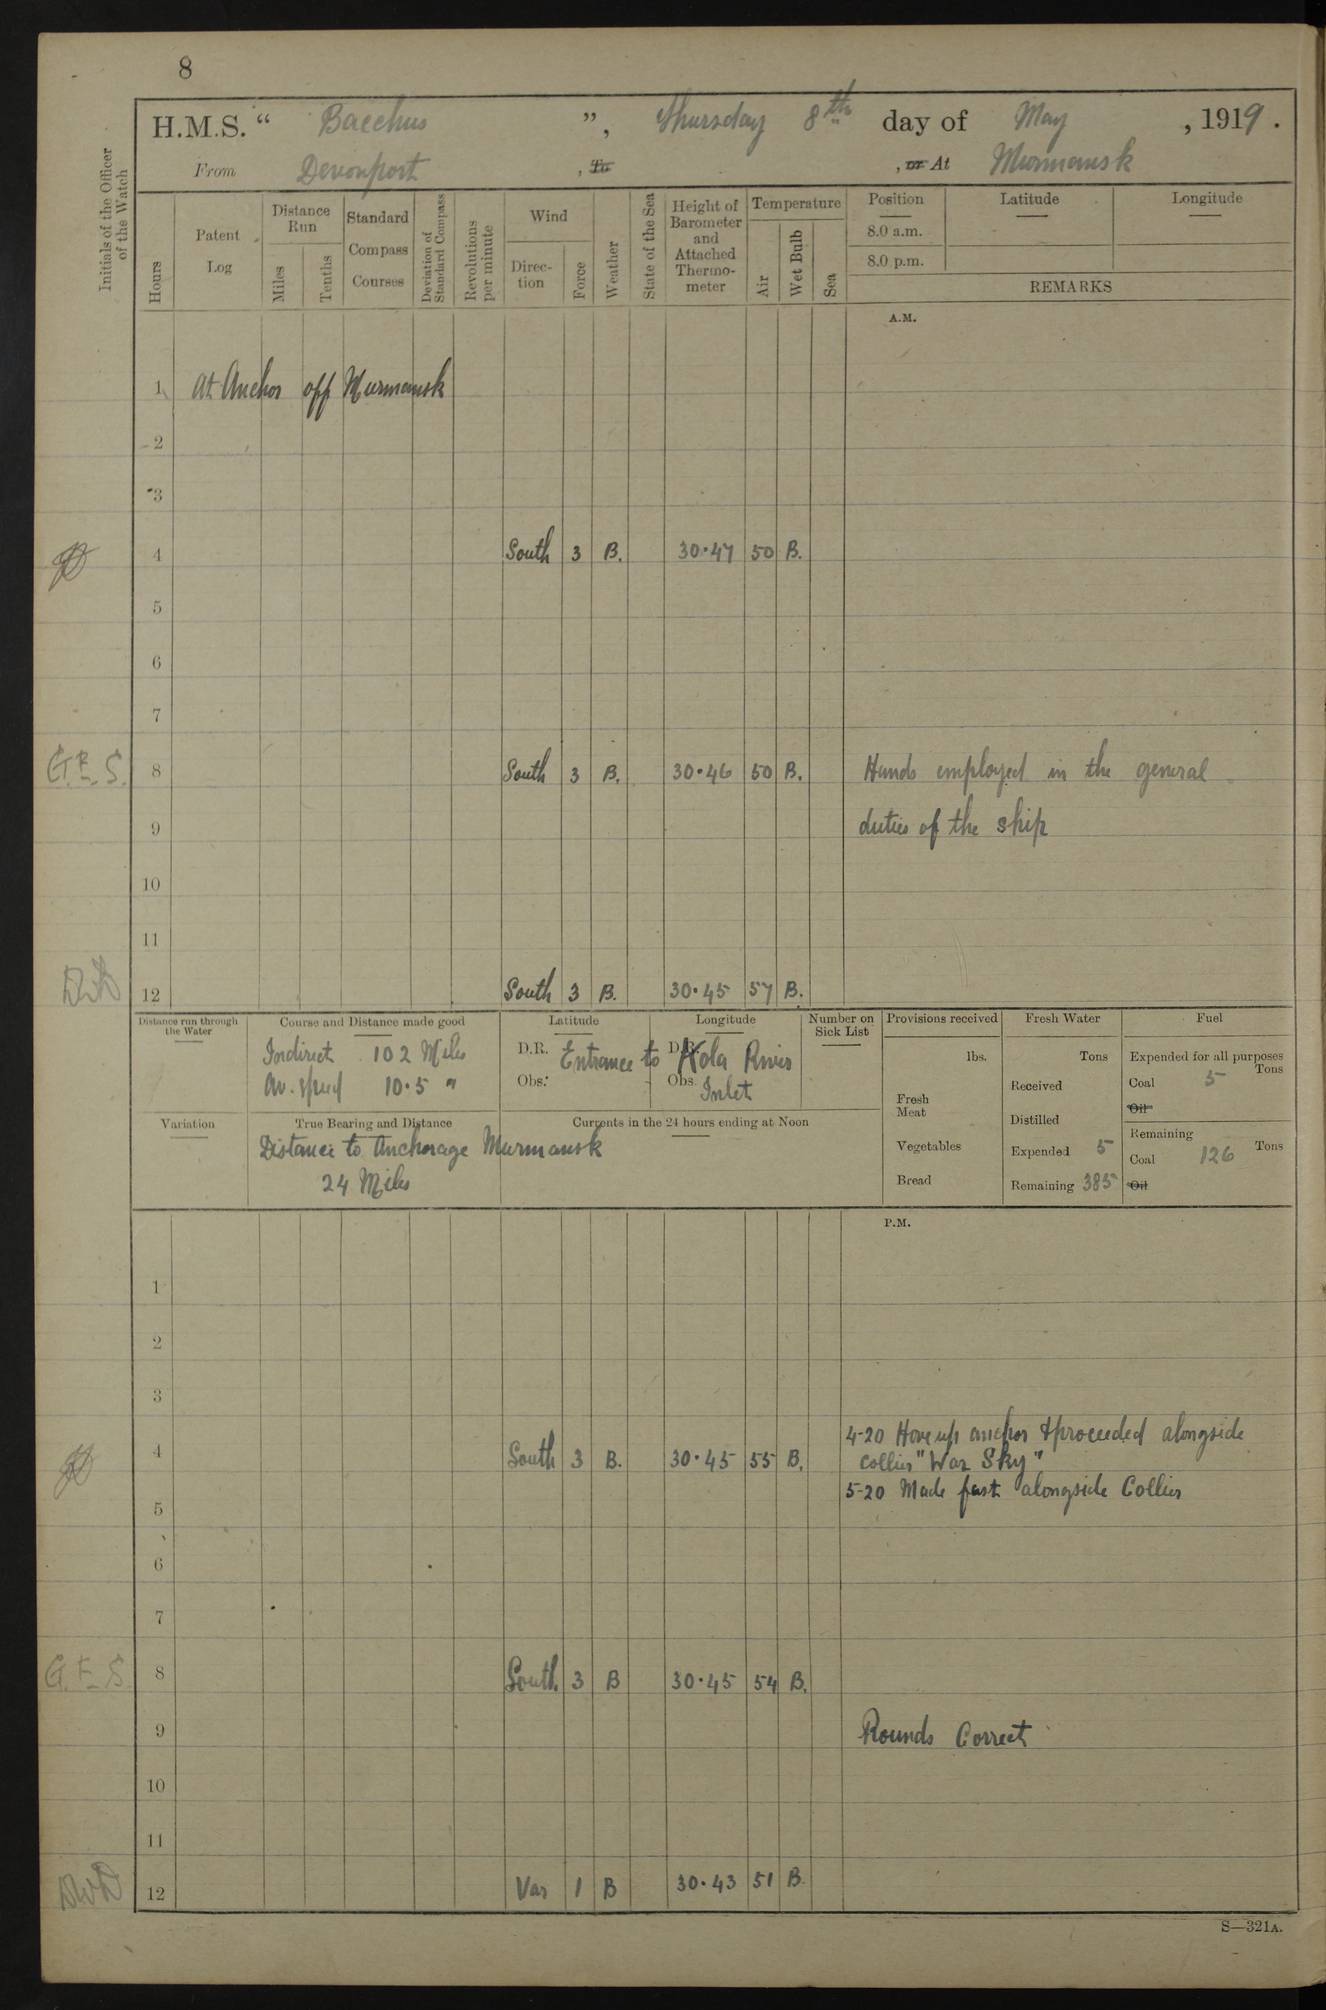 8
H.M.S. “ Bacchus ”, Thursday 8th day of May , 1919 .
From Devonport , To , or At Murmansk
Initials of the Officer of the Watch
Hours
Patent Log
Distance Run
Miles
Tenths
Standard Compass Courses
Deviation of Standard Compass
Revolutions per minute
Wind
Direction
Force
Weather
State of the Sea
Height of Barometer and Attached Thermometer
Temperature
Air
Wet Bulb
Sea
Position
8.0 a.m.
8.0 p.m.
Latitude
Longitude
REMARKS
A.M.
1 At Anchor off Murmansk
2
3
4 South 3 B. 30.47 50 B.
5
6
7
G.F.S. 8 South 3 B. 30.46 50 B. Hands employed in the general
9 duties of the ship
10
11
DWD 12 South 3 B. 30.45 57 B.
Distance run through the Water
Course and Distance made good
Indirect 102 Miles
Av. speed 10.5 "
Latitude
D.R. Entrance to
Obs.
Longitude
D.R. Kola River
Obs. Inlet
Number on Sick List
Provisions received
lbs.
Fresh Meat
Vegetables
Bread
Fresh Water
Tons
Received
Distilled
Expended 5
Remaining 385
Fuel
Expended for all purposes
Tons
Coal 5
Oil
Remaining
Coal 126 Tons
Oil
Variation
True Bearing and Distance
Currents in the 24 hours ending at Noon
Distance to Anchorage Murmansk
24 Miles
P.M.
1
2
3
4-20 Hove up anchor & proceeded alongside
4 South 3 B. 30.45 55 B. collier "War Sky"
5-20 Made fast alongside Collier
5
6
7
G.F.S. 8 South 3 B 30.45 54 B.
9 Rounds Correct
10
11
DWD 12 Var 1 B 30.43 51 B
S—321A.